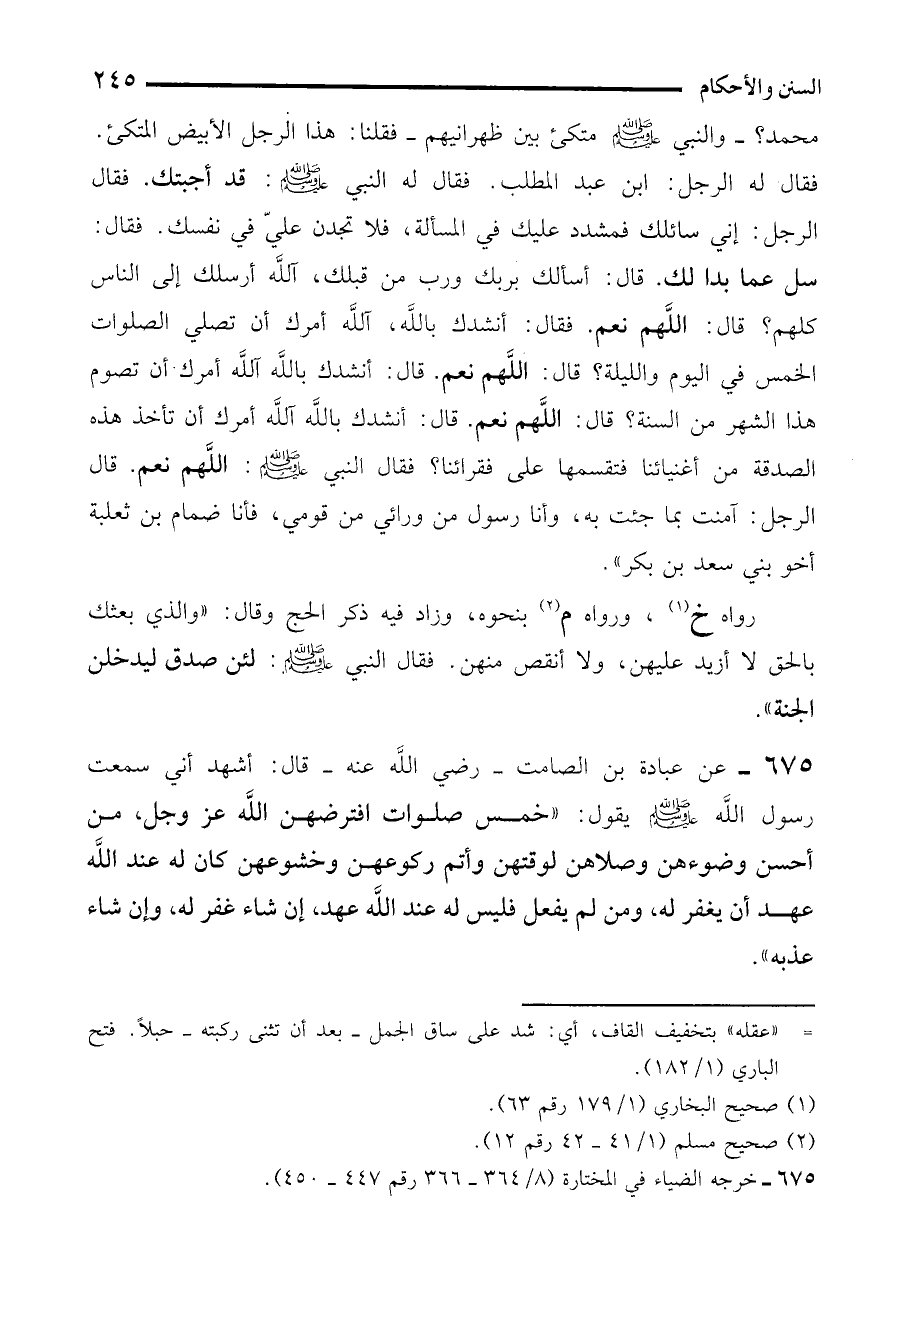 السنن والأحكام ٢٤٥
محمد؟ ـ والنبي ﷺ متكئ بين ظهرانيهم ـ فقلنا: هذا الرجل الأبيض المتكئ.
فقال له الرجل: ابن عبد المطلب. فقال له النبي ﷺ: قد أجبتك. فقال
الرجل: إني سائلك فمشدد عليك في المسألة، فلا تجدن عليّ في نفسك. فقال:
سل عما بدا لك. قال: أسألك بربك ورب من قبلك، آللَّه أرسلك إلى الناس
كلهم؟ قال: اللَّهم نعم. فقال: أنشدك باللَّه، آللَّه أمرك أن تصلي الصلوات
الخمس في اليوم والليلة؟ قال: اللَّهم نعم. قال: أنشدك باللَّه آللَّه أمرك أن تصوم
هذا الشهر من السنة؟ قال: اللَّهم نعم. قال: أنشدك باللَّه آللَّه أمرك أن تأخذ هذه
الصدقة من أغنيائنا فتقسمها على فقرائنا؟ فقال النبي ﷺ: اللَّهم نعم. قال
الرجل: آمنت بما جئت به، وأنا رسول من ورائي من قومي، فأنا ضمام بن ثعلبة
أخو بني سعد بن بكر».
رواه خ(١)، ورواه م(٢) بنحوه، وزاد فيه ذكر الحج وقال: «والذي بعثك
بالحق لا أزيد عليهن، ولا أنقص منهن. فقال النبي ﷺ: لئن صدق ليدخلن
الجنة».
٦٧٥ ـ عن عبادة بن الصامت ـ رضي اللَّه عنه ـ قال: أشهد أني سمعت
رسول اللَّه ﷺ يقول: «خمس صلوات افترضهن اللَّه عز وجل، من
أحسن وضوءهن وصلاهن لوقتهن وأتم ركوعهن وخشوعهن كان له عند اللَّه
عهد أن يغفر له، ومن لم يفعل فليس له عند اللَّه عهد، إن شاء غفر له، وإن شاء
عذبه».
= «عقله» بتخفيف القاف، أي: شد على ساق الجمل ـ بعد أن تثنى ركبته ـ حبلاً. فتح
الباري (١/ ١٨٢).
(١) صحيح البخاري (١/ ١٧٩ رقم ٦٣).
(٢) صحيح مسلم (١/ ٤١ ـ ٤٢ رقم ١٢).
٦٧٥ ـ خرجه الضياء في المختارة (٨/ ٣٦٤ ـ ٣٦٦ رقم ٤٤٧ ـ ٤٥٠).